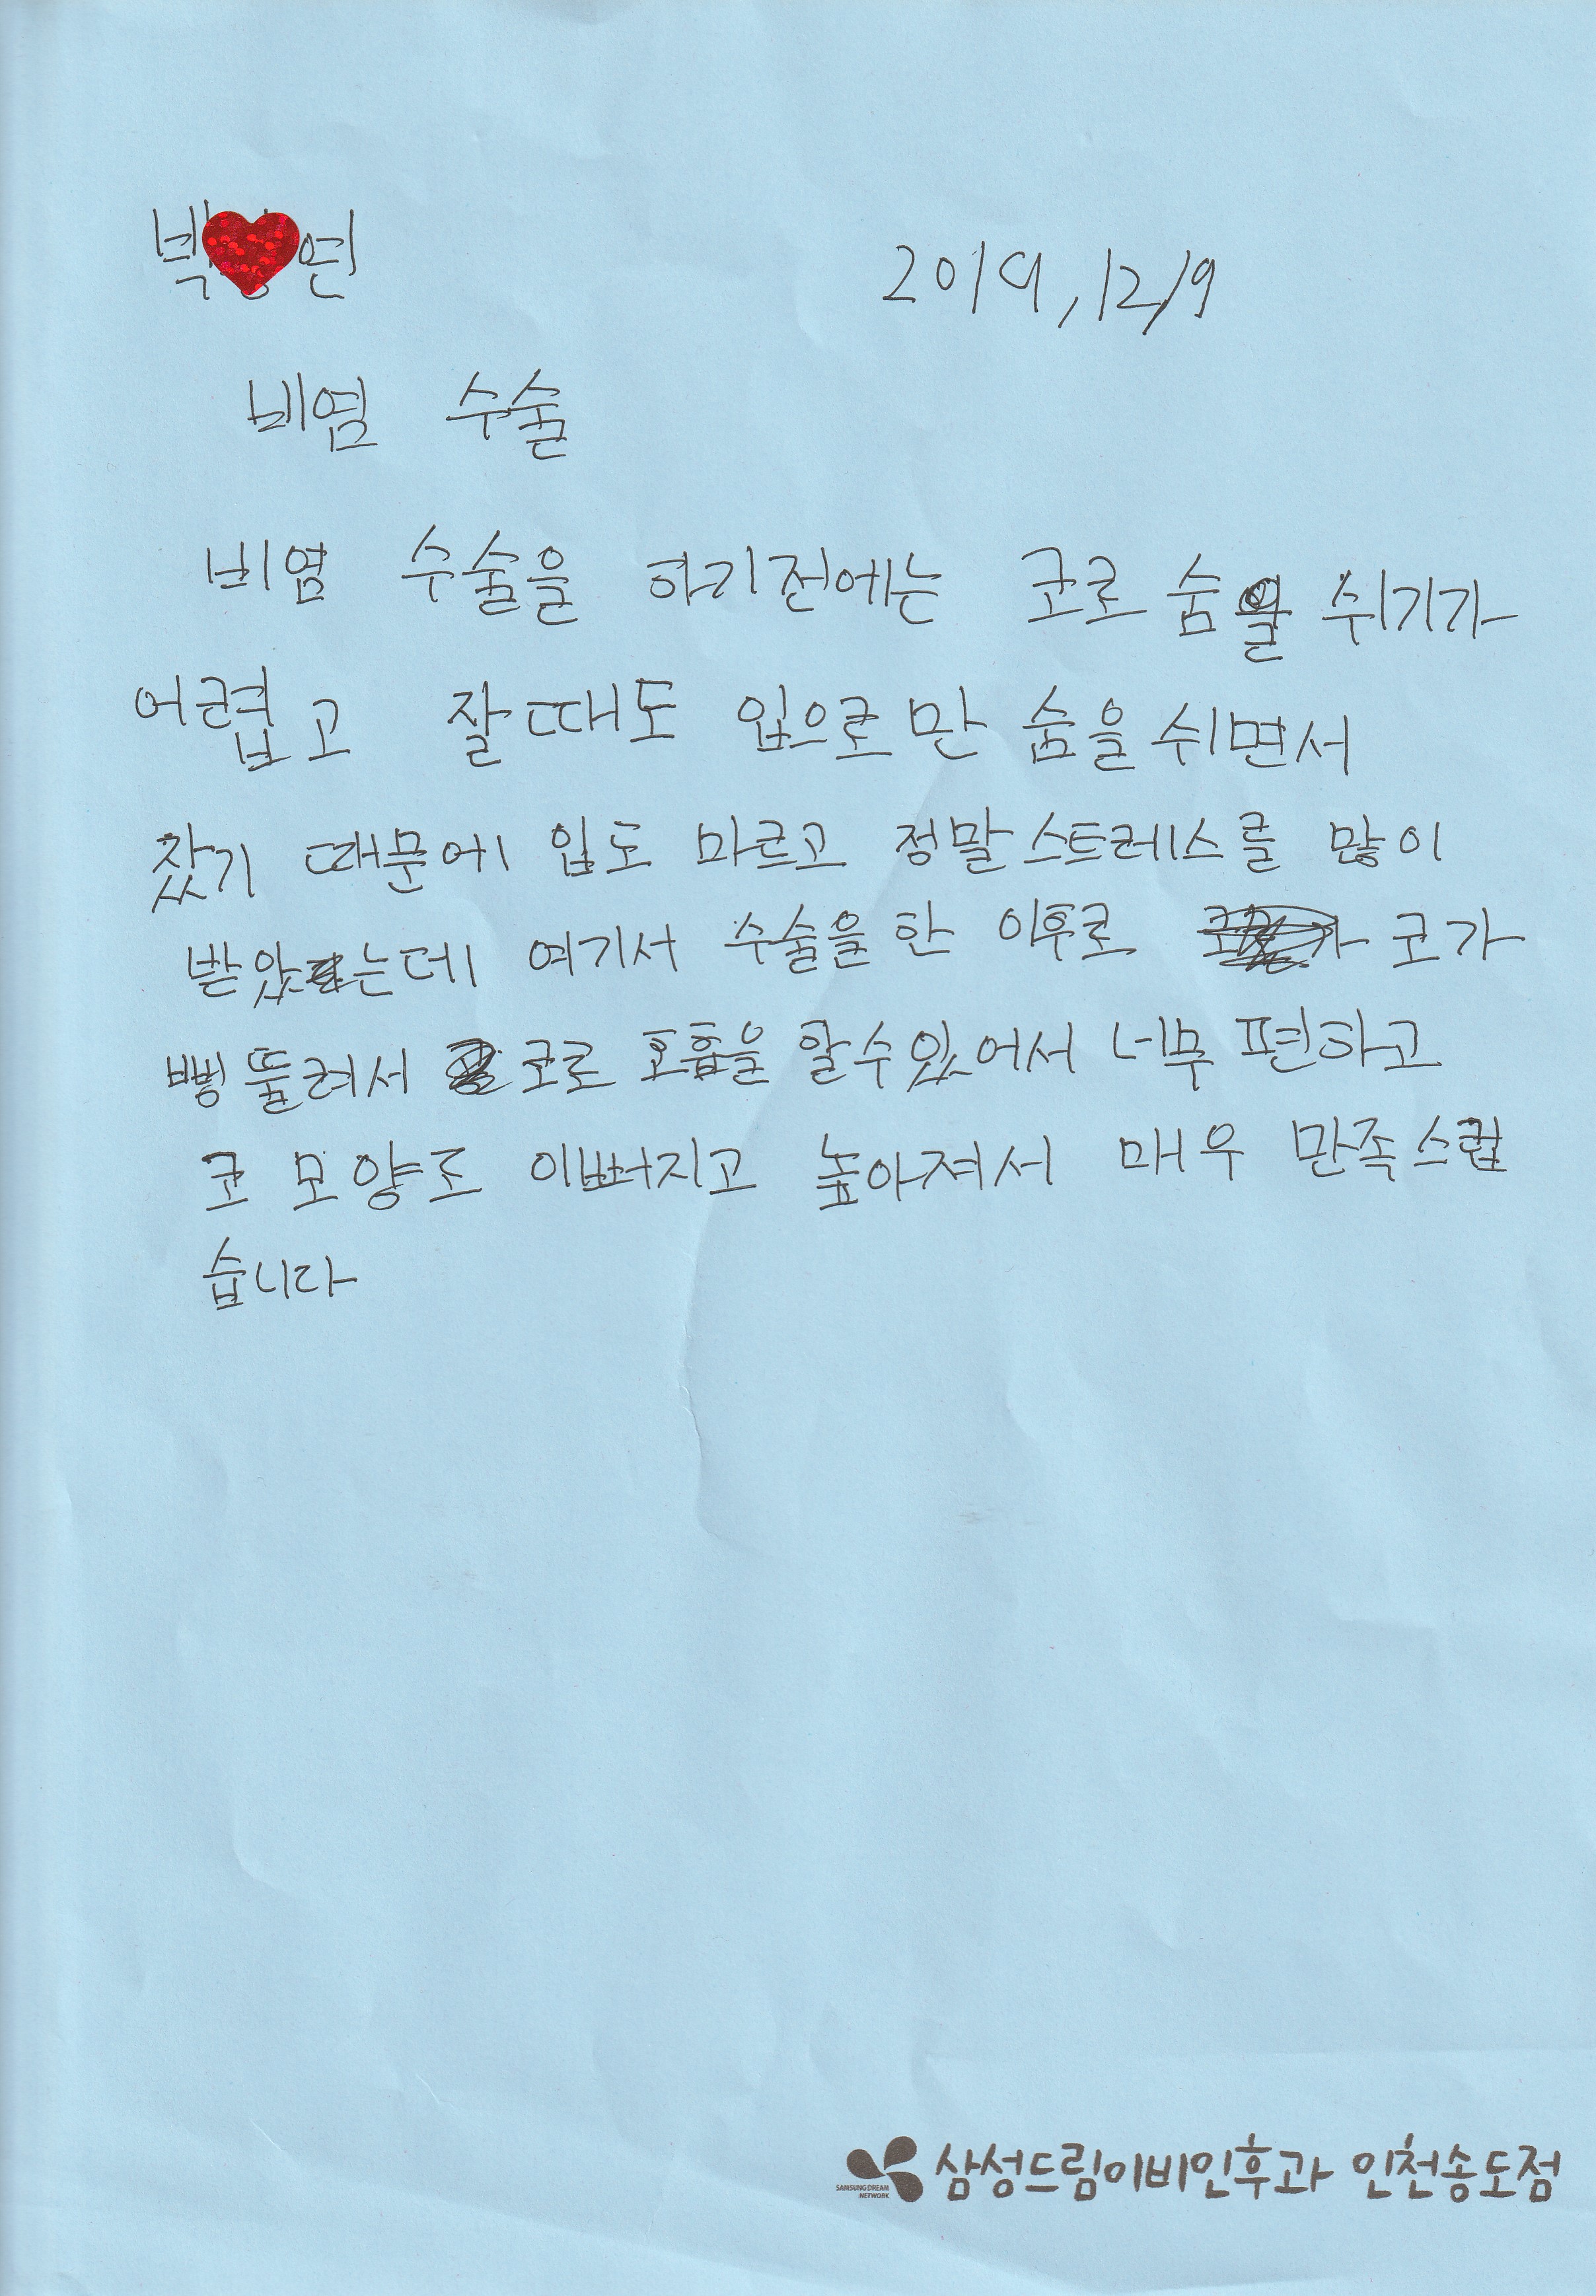 박 연
2019, 12/9
비염 수술
비염 수술을 하기전에는 코로 숨을 쉬기가
어렵고 잘때도 입으로만 숨을 쉬면서
잤기 때문에 입도 마르고 정말 스트레스를 많이
받았는데 여기서 수술을 한 이후로 코가
삥 뚤려서 코로 호흡을 할수있어서 너무 편하고
코 모양도 이뻐지고 높아져서 매우 만족스럽
습니다
SAMSUNG DREAM
NETWORK
삼성드림이비인후과 인천송도점